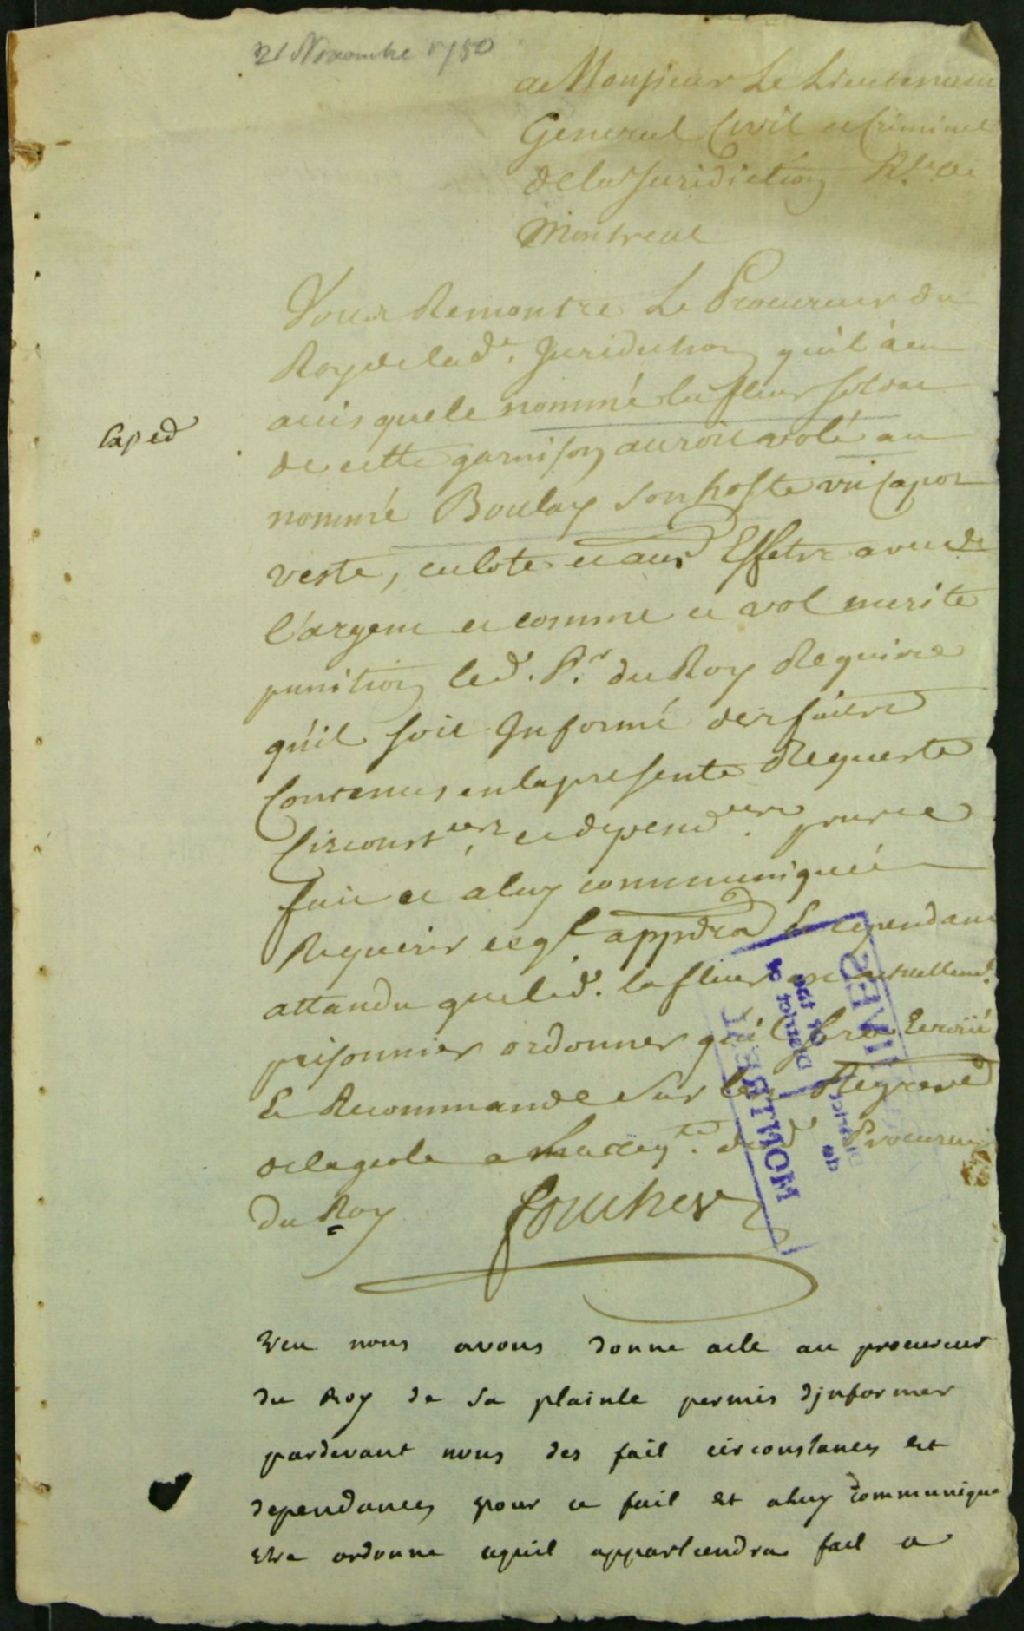 21 Novembre 1750
A Monsieur Le Lieutenant
General Civil et Criminel
de la Juridiction Rle. de
Montreal
Vous Remontre Le Procureur du
Roy de lad. Juridiction quil à eu
avis que le nommé la fleur soldat
de cette garnison auroit volé au
nommé Boulay son hoste un Capot
veste, culote et aus Effets avec de
l'argent et comme ce vol merite
punition led. Pr. du Roy Requiere
qu'il soit Informé des faits
Contenus en la presente Requeste
Circonst.ces et depend.ces pour ce
fait et a luy communiqué
Requerir ce ql. appdra Et cependant
attandu que led. la fleur est actuellemt.
prisonnier ordonner quil sera Ecroüé
Et Recommandé sur les Registres
de la geole a dud. Procureur
du Roy foucher
Veu nous avons donne acte au procureur
du Roy de sa plainte permis djnformer
pardevant nous des fait circonstances et
dependances pour ce fait et aluy communique
Etre ordonne cequil appartiendra fait a
MONTREAL